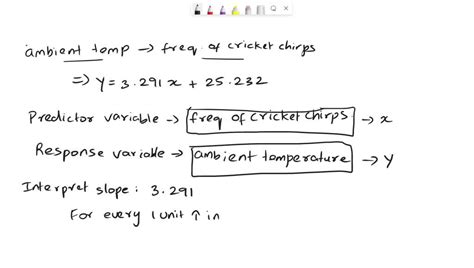 ambient temp → freq. of cricket chirps
⇒ Y = 3.291x + 25.232
Predictor variable → freq of cricket chirps → x
Response variable → ambient temperature → Y
Interpret slope: 3.291
For every 1 unit ↑ in